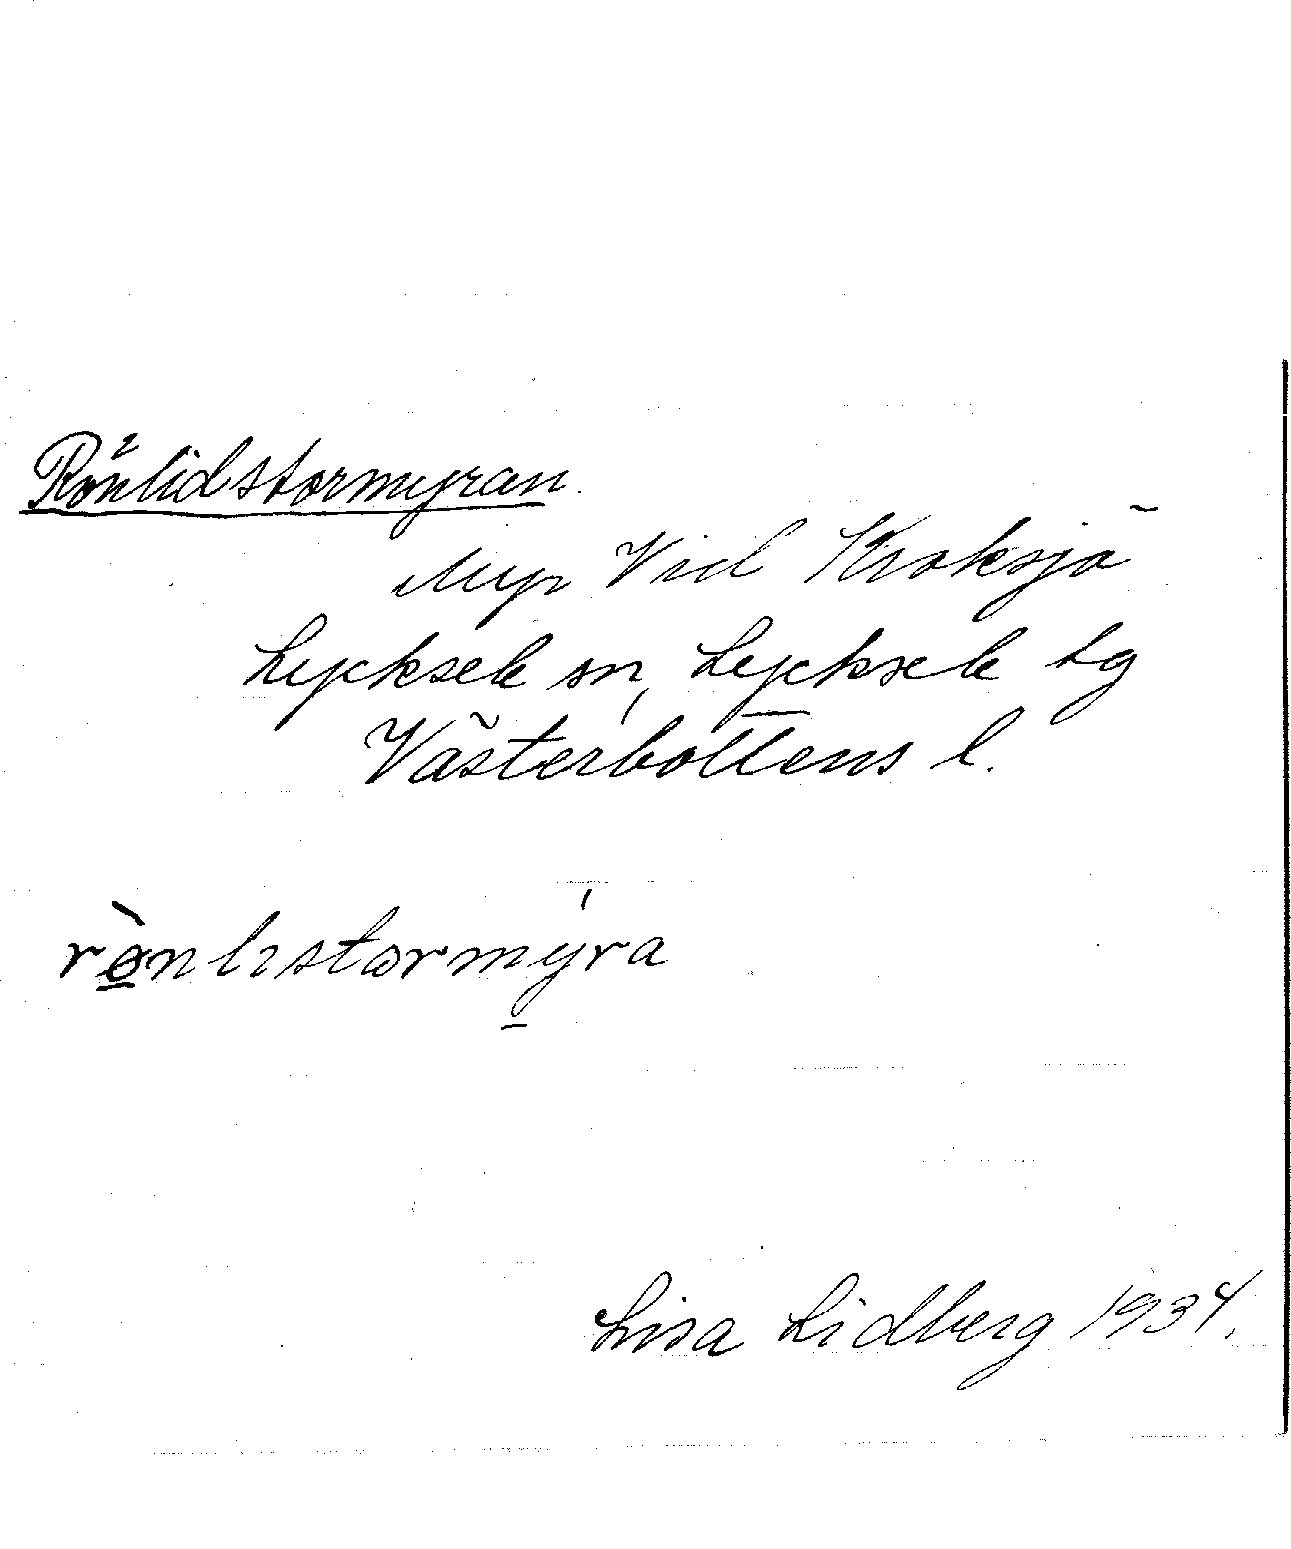 Rönlidstormyran.
Myr Vid Kroksjö
Lycksele sn, Lycksele tg
Västerbottens l.
rö̀nlıstormýra
Lisa Lidberg 1934.